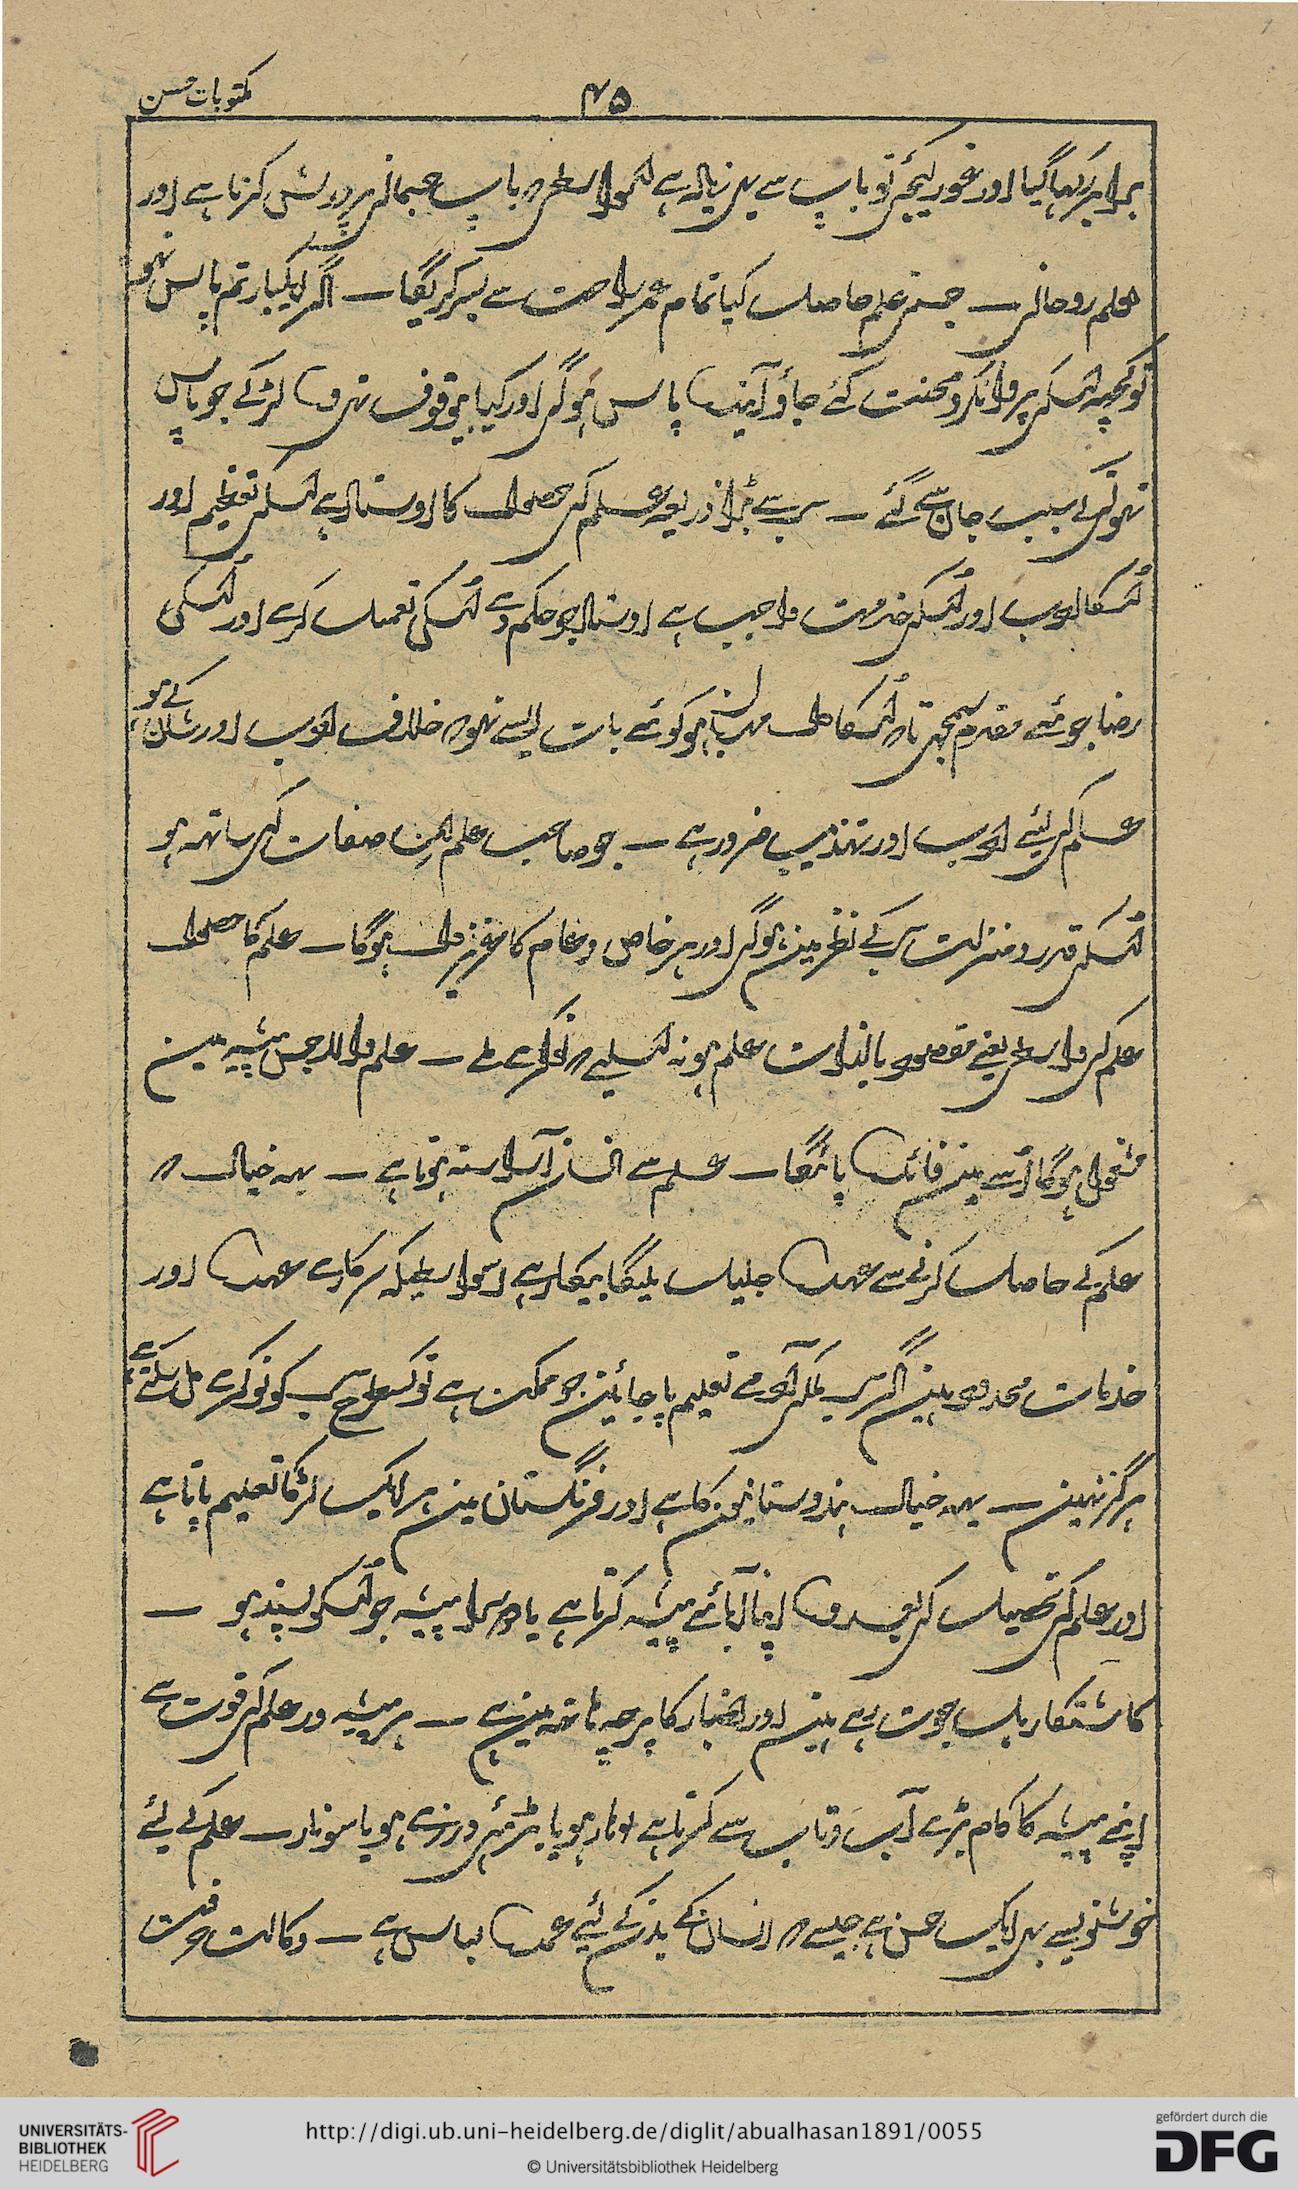 مکتوبات حسن
۴۵
برابر کہا گیا اور غور کیجئے تو باپ سے بہی زیادہ ہے اسواسطے کہ باپ جسمانی پرورش کرتا ہے اور
معلم روحانی ــ جسنے علم حاصل کیا تمام عمر راحت سے بسر کریگا ــ اگر ایکبار تم پاس نہو
تو کچہہ اسکی پروا نکرو محنت کئے جاؤ آیندہ پاس ہوگی اور کیا بیوقوف تہی وہ لڑکے جو پاس
نہونیکے سبب جان سے گئے ــ سب سے بڑا ذریعہ علم کی حصول کا اوستاد ہے اسکی تعظیم اور
اُسکا ادب اور اُسکی خدمت واجب ہے اوستاد جو حکم دے اُسکی تعمیل کرے اور اُسکی
رضا جوئی مقدم سمجہے تاکہ اُسکا دل مہربان ہو کوئی بات ایسی نہو کہ خلاف ادب اور شان کے ہو
علم کی لیئے ادب اور تہذیب ضرور ہے ــ جو صاحب علم اِن صفات کی ساتہہ ہو
اُسکی قدر و منزلت سب کے نظر مین ہوگی اور ہر خاص و عام کا عزیز دل ہوگا ــ علم کا حصول
علم کی واسطے یعنی مقصود بالذات علم ہو نہ اسلیے کہ نوکری ملے ــ علم والا جس پیشہ مین
مشغول ہوگا اُسی مین فائدہ پائیگا ــ علم سے انسان آراستہ ہوتا ہے ــ یہہ خیال کہ
علم کے حاصل کرنے سے عہدہ جلیل ملیگا بیکار ہے اسواسطیکہ سرکاری عہدہ اور
خدمات محدود ہین اگر سب ملک کی آدمی تعلیم پا جائین جو ممکن ہے تو کسطرح سب کو نوکری مل سکتی ہے
ہرگز نہین ــ یہہ خیال ہندوستانیون کا ہے اور فرنگستان مین ہر ایک لڑکا تعلیم پاتا ہے
اور علم کی تحصیل کی بعد وہ اپنا آبائی پیشہ کرتا ہے یا دوسرا پیشہ جو اُسکو پسند ہو ــ
کاشتکار ہل جوت رہے ہین اور اخبار کا پرچہ ہاتہہ مین ہے ــ ہر پیشہ ور علم کی قوت سے
اپنے پیشہ کا کام بڑے آب و تاب سے کرتا ہے لوہار ہو یا بڑہئی درزی ہو یا سونار ــ علم کے لئے
خوشنویسی بہی ایک حسن ہے جیسے کہ انسان کے بدن کے لئے عمدہ لباس ہے ــ وکالت و
UNIVERSITÄTS-
BIBLIOTHEK
HEIDELBERG
http://digi.ub.uni-heidelberg.de/diglit/abualhasan1891/0055
© Universitätsbibliothek Heidelberg
gefördert durch die
DFG